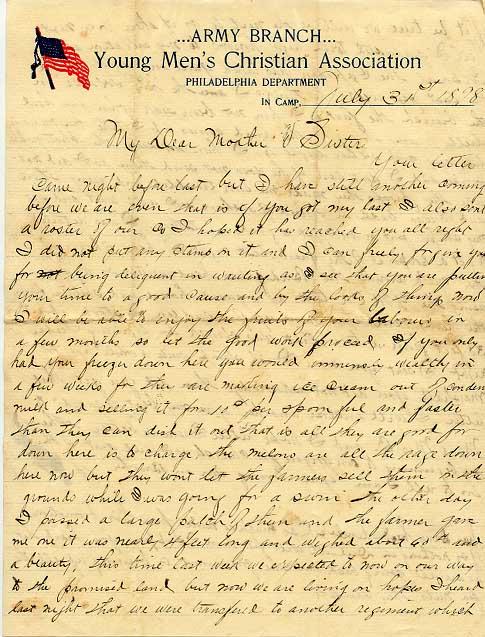 ...ARMY BRANCH...
Young Men's Christian Association
PHILADELPHIA DEPARTMENT
IN CAMP, July 31st 1898
My Dear Mother & Sister
Your letter
came night before last but I have still another coming
before we are even that is if you got my last I also sent
a roster of our Co I hope it has reached you all right
I did not put any stamp on it and I can freely forgive you
for not being deliquent in writing as I see that you are putting
your time to a good cause and by the looks of things now
I will be able to enjoy the fruits of your labours in
a few months so let the good work proceed if you only
had your freezer down here you would immensie wealthy in
a few weeks for they are making ice cream out of conden
milk and selling it for 10cts per spoon ful and faster
than they can dish it out that is all they are good for
down here is to charge the melons are all the rage down
here now but they wont let the farmers sell them in the
grounds while I was going for a swim the other day
I passed a large patch of them and the farmer gave
me one it was nearly feet long and weighed about 40 and
a beauty, this time last week we expected to now on our way
to the promised land but now we are living on hopes I heard
last night that we were transfered to another regiment which